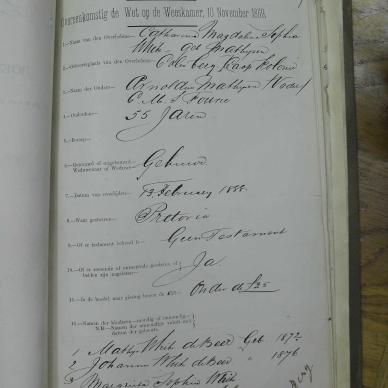 Overeenkomstig de Wet op de Weeskamer, 10 November 1868.
1.—Naam van den Overledene Catharina Magdalena Sophia
geb Mathysen
2.—Geboorteplaats van den Overledene Colesberg Kaap Kolonie
3.—Namen der Ouders Arnoldus Mathysen Vader
C. M. S. Fourie
4.—Ouderdom 55 Jaren
5.—Beroep
6.—Getrouwd of ongetrouwd,
Weduwnaar of Weduwe Gehuwd
7.—Datum van overlijden 13 February 1888.
8.—Waar gestorven Pretoria
9.—Of er testament bestaat Geen Testament
10.—Of er roerende of onroerende goederen, of
beiden zijn nagelaten Ja
11.—Is de boedel naar gissing boven de Onder de £25
12.—Namen der kinderen—mondig of onmondig—
N.B.—Namen der onmondige voluit met
datum der geboorte.
1 de Beer Geb 1872
2 Johanna de Beer " 1876
3 Sophia